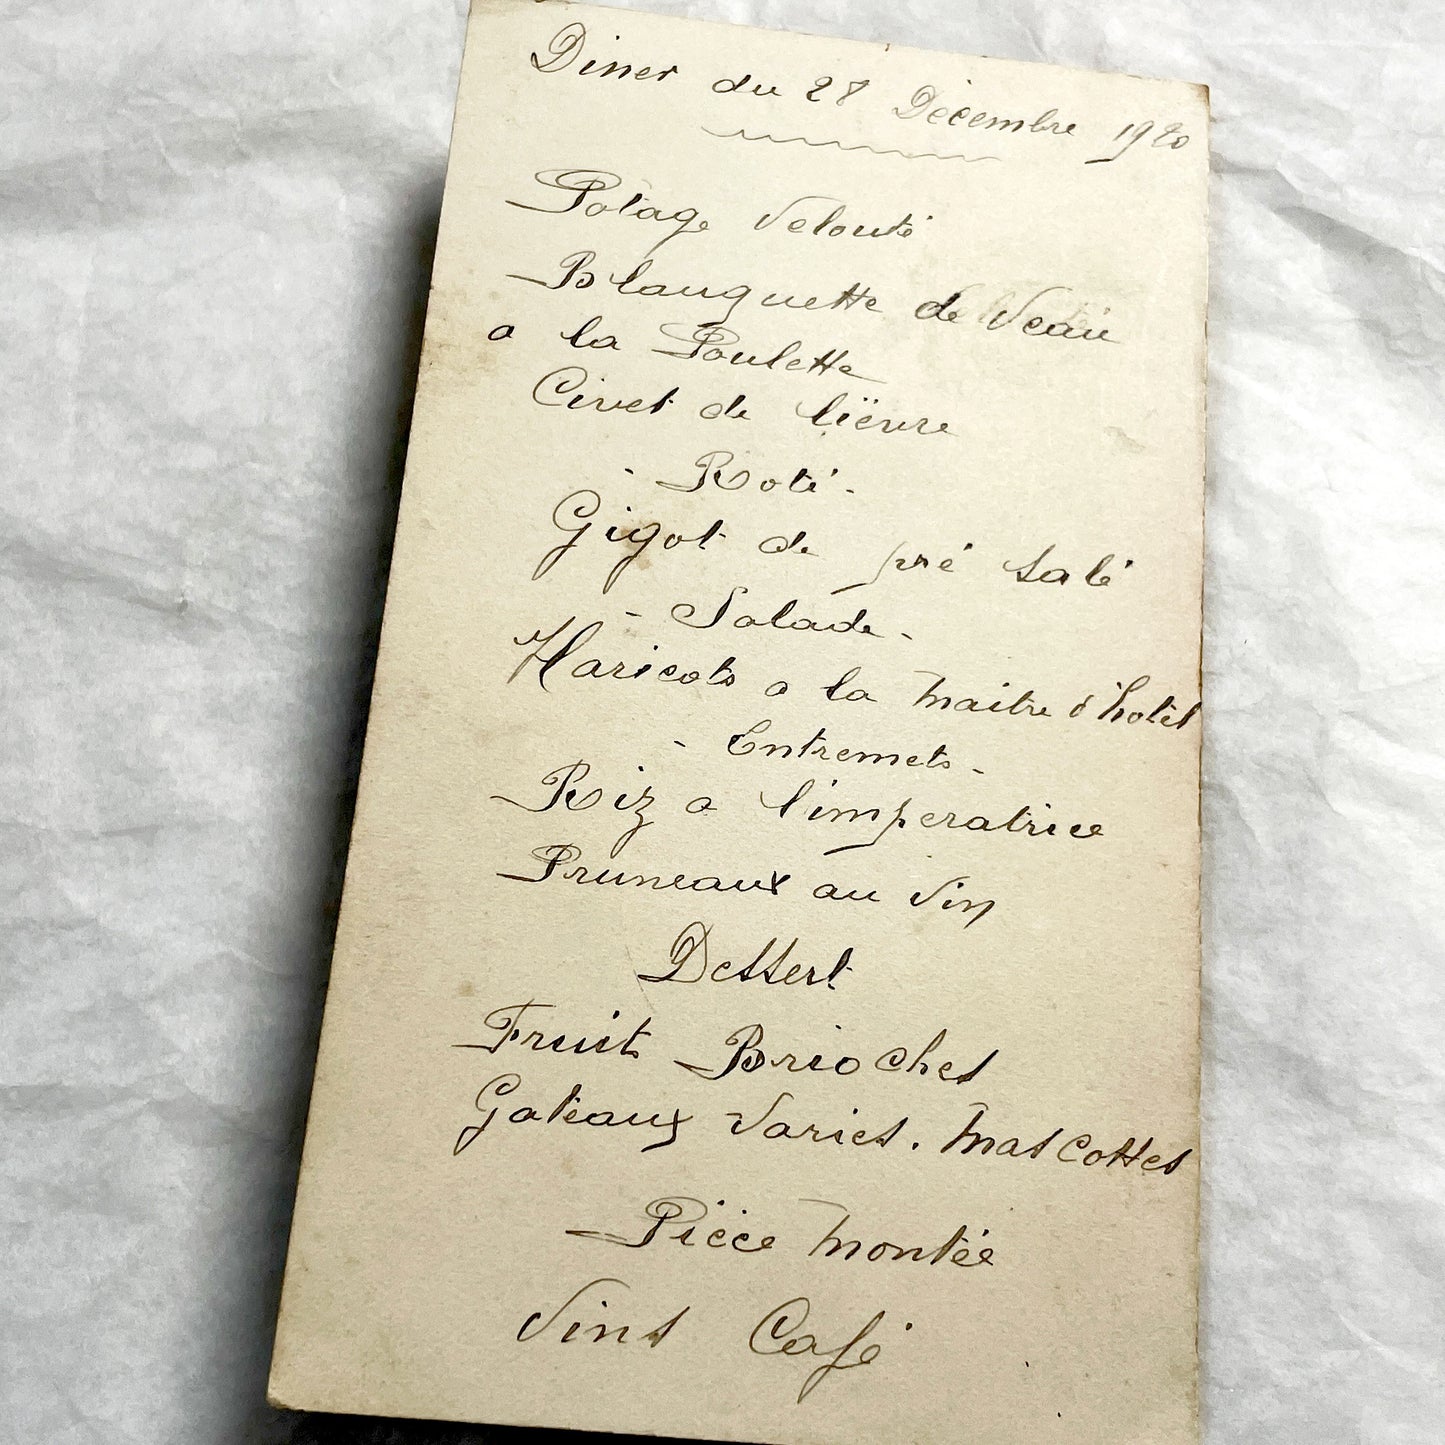 Diner du 28 Décembre 1920
Potage Velouté
Blanquette de Veau
a la Poulette
Civet de lièvre
- Roti -
Gigot de pré salé
- Salade -
Haricots a la maitre d'hotel
- Entremets -
Riz a l'imperatrice
Pruneaux au Vin
Dessert
Fruit Brioches
Gateaux Varies. Mascottes
Pièce montée
Vins Café